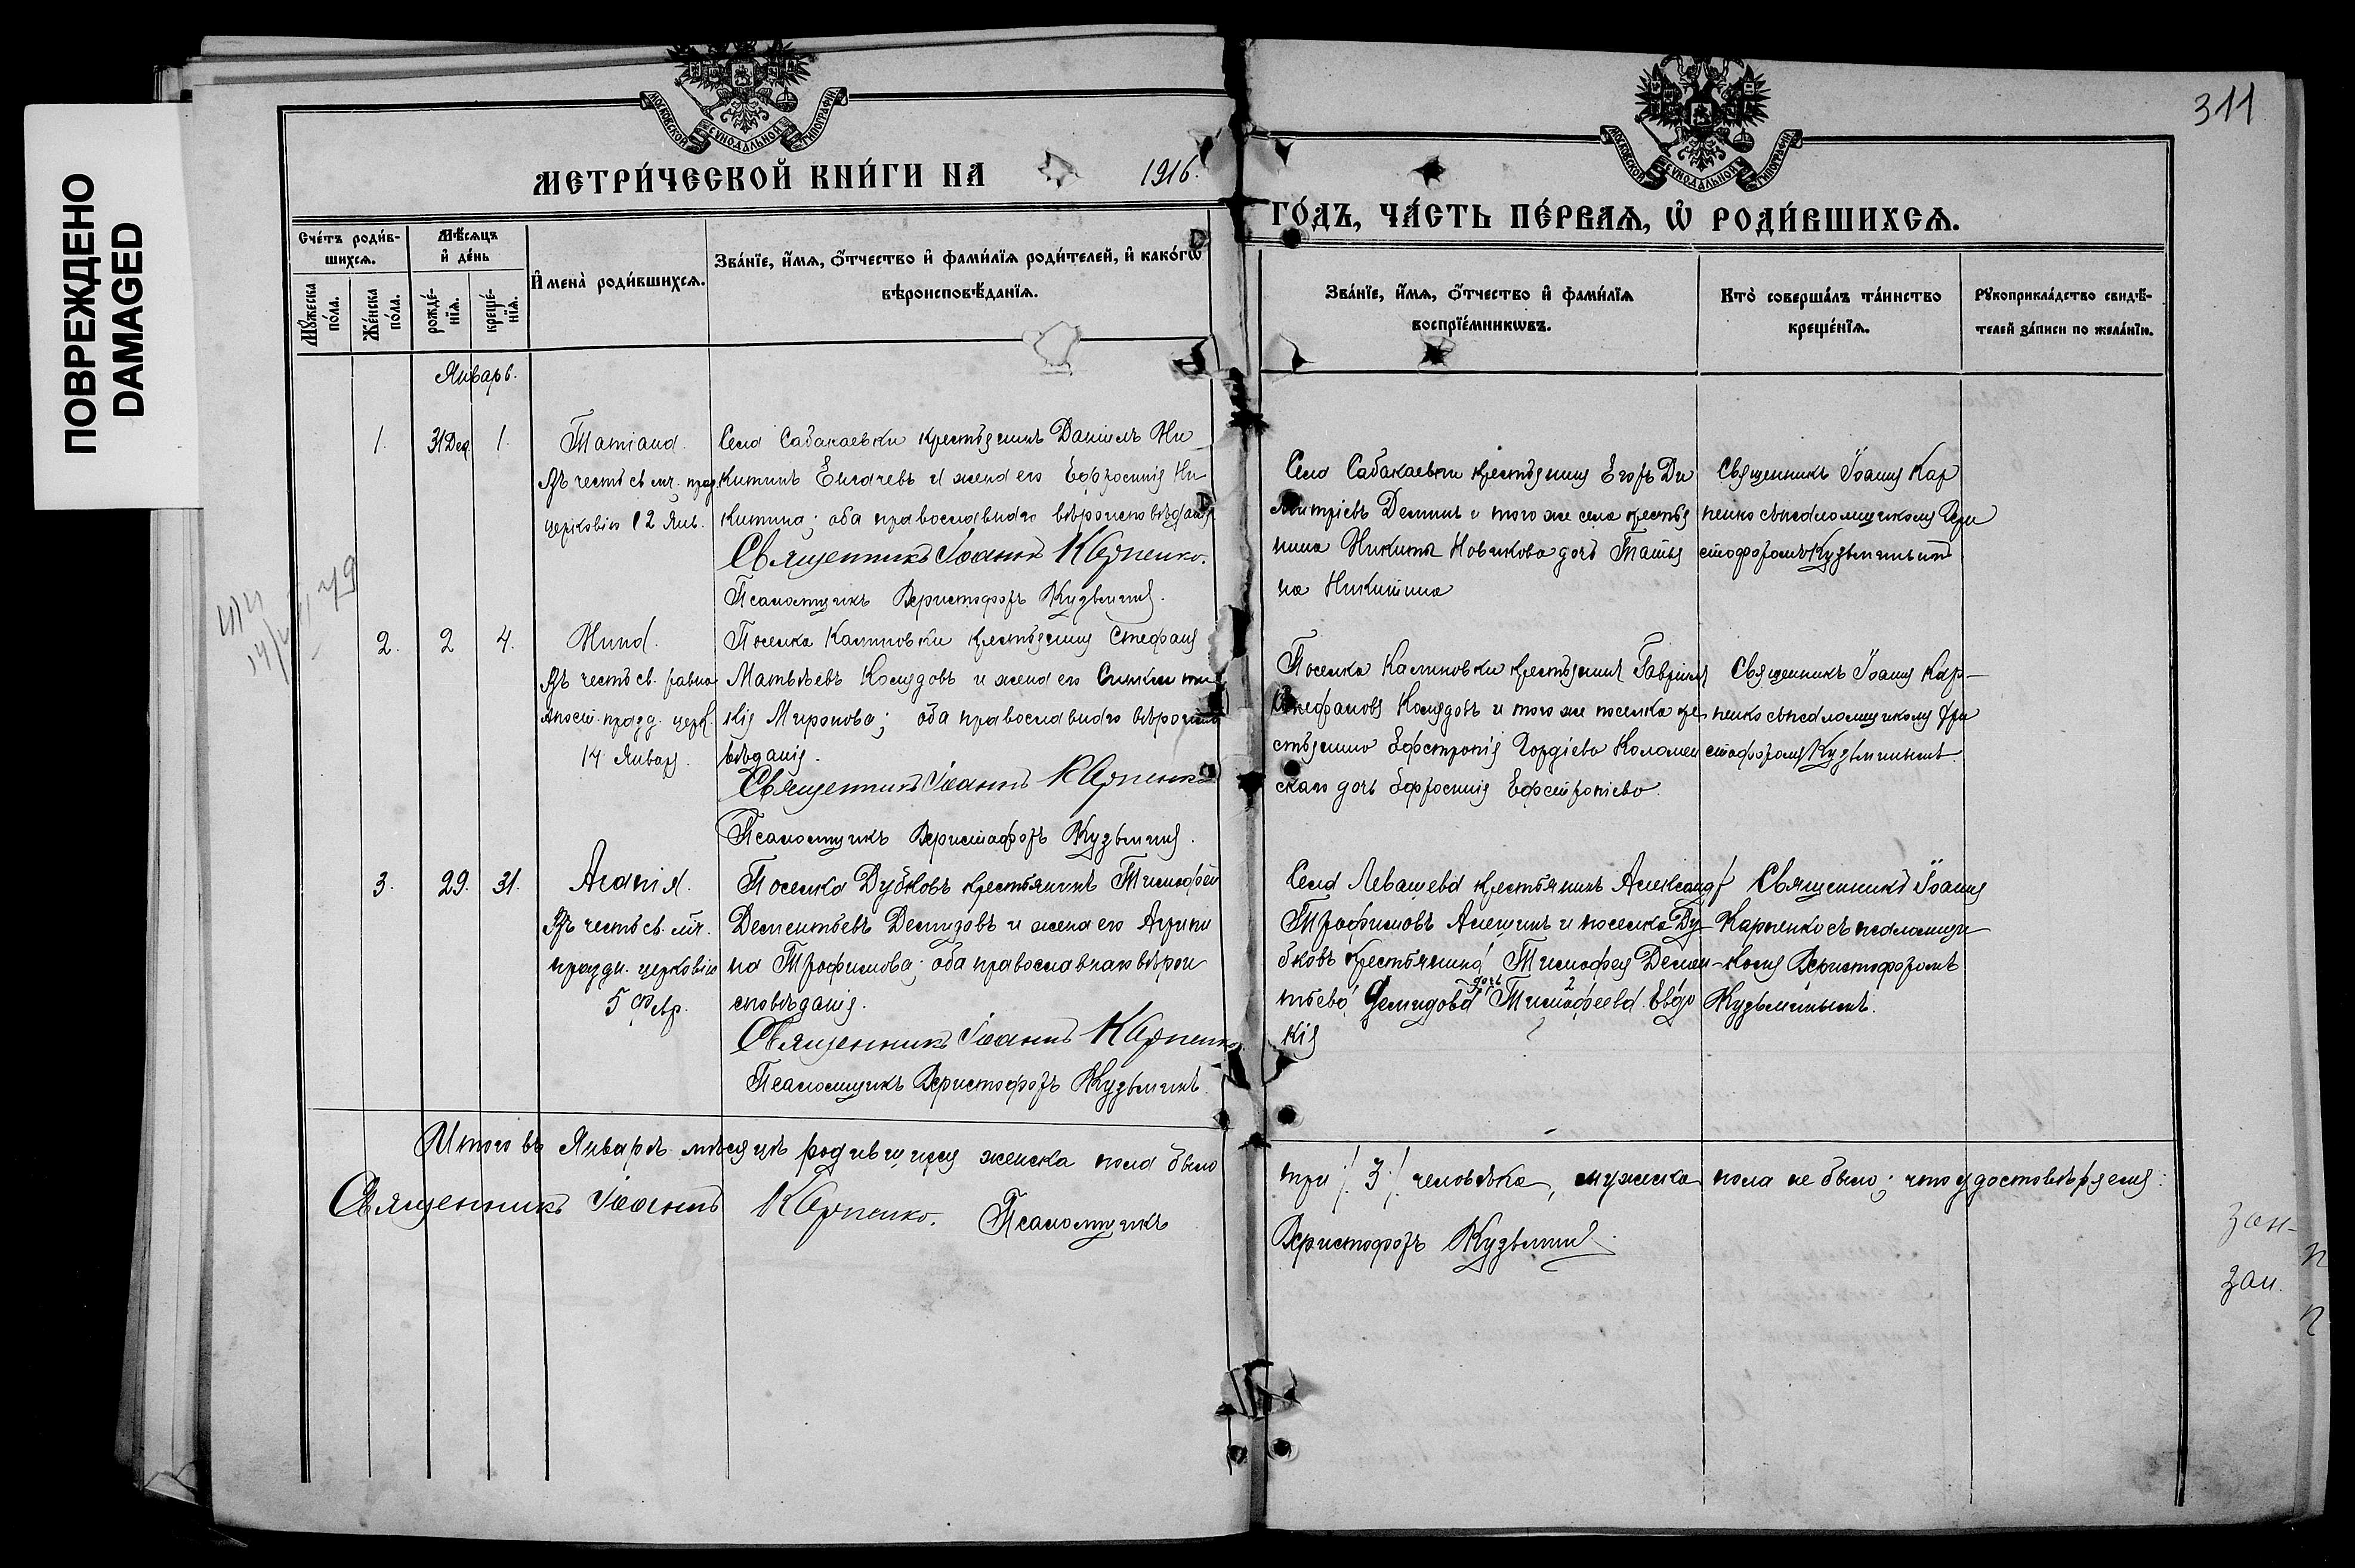 ПОВРЕЖДЕНО
DAMAGED
311
МОСКОВСКОЙ СУНОДАЛЬНОЙ ТИПОГРАФИИ
МОСКОВСКОЙ СУНОДАЛЬНОЙ ТИПОГРАФИИ
МЕТРИ́ЧЕСКОЙ КНИ́ГИ НА 1916.
ГО́ДЪ, ЧА́СТЬ ПЕ́РВАЯ, Ѡ҆ РОДИ́ВШИХСЯ.
Сче́тъ роди́в-
шихся.
Мꙋ́жеска
по́ла.
Же́нска
по́ла.
Мѣ́сяцъ
и҆ де́нь
рожде́-
нїя.
креще́-
нїя.
И҆мена̀ роди́вшихся.
Зва́нїе, и҆́мя, ѻ҆́тчество и҆ фами́лїя роди́телей, и҆ како́гѡ
вѣроисповѣ́данїя.
Зва́нїе, и҆́мя, ѻ҆́тчество и҆ фами́лїя
воспрїе́мникωвъ.
Кто̀ соверша́лъ та́инство
креще́нїя.
Рꙋкоприкла́дство свидѣ́-
телей за́писи по жела́нїю.
Январь.
1. 31 Дек. 1. Татіана.
Въ честь св. мч. празд.
церковію 12 Янв.
Села Сабакаевки крестьянинъ Даніилъ Ни
китинъ Енгачевъ и жена его Ефросинія Ни
китина; оба православнаго вѣроисповѣданія
Священникъ Іоаннъ Карпенко.
Псаломщикъ Христофоръ Кузьминъ.
Села Сабакаевки крестьянинъ Егоръ Ди
митріевъ Деминъ и того же села крестья
нина Никиты Новикова дочь Татья
на Никитина
Священникъ Іоаннъ Кар
пенко съ псаломщикомъ Хри
стофоромъ Кузьминымъ
2. 2 4. Нина.
Въ честь св. равно
апост. празд. церк.
14 Января.
Поселка Калиновки крестьянинъ Стефанъ
Матвѣевъ Колядовъ и жена его Синкли ти
кія Миронова; оба православнаго вѣроиспо
вѣданія.
Священникъ Іоаннъ Карпенко
Псаломщикъ Христофоръ Кузьминъ.
Поселка Калиновки крестьянинъ Гавріилъ
Стефановъ Колядовъ и того же поселка кре
стьянина Ефстропія Гордіева Коломен
скаго дочь Ефросинія Ефстропіева.
Священникъ Іоаннъ Кар-
пенко съ псаломщикомъ Хри
стофоромъ Кузьминымъ.
3. 29. 31. Агапія.
Въ честь св. мч.
праздн. церковію
5 Февр.
Поселка Дубковъ крестьянинъ Тимофей
Дементьевъ Демидовъ и жена его Агрипи
на Трофимова; оба православнаго вѣрои
сповѣданія.
Священникъ Іоаннъ Карпенко.
Псаломщикъ Христофоръ Кузьминъ.
Села Левашева крестьянинъ Александръ
Трофимовъ Алешинъ и поселка Ду
бковъ крестьянина Тимофея Демен-
тьева Демидова дочь Тимофеева Евдо
кія
Священникъ Іоаннъ
Карпенко съ псаломщи
комъ Христофоромъ
Кузьминымъ.
Итого въ Январѣ мѣсяцѣ родившихся женска пола было
три /3/ человѣка, мужска пола не было; что удостовѣряемъ:
Священникъ Іоаннъ Карпенко. Псаломщикъ
Христофоръ Кузьминъ.
зап.
зап.